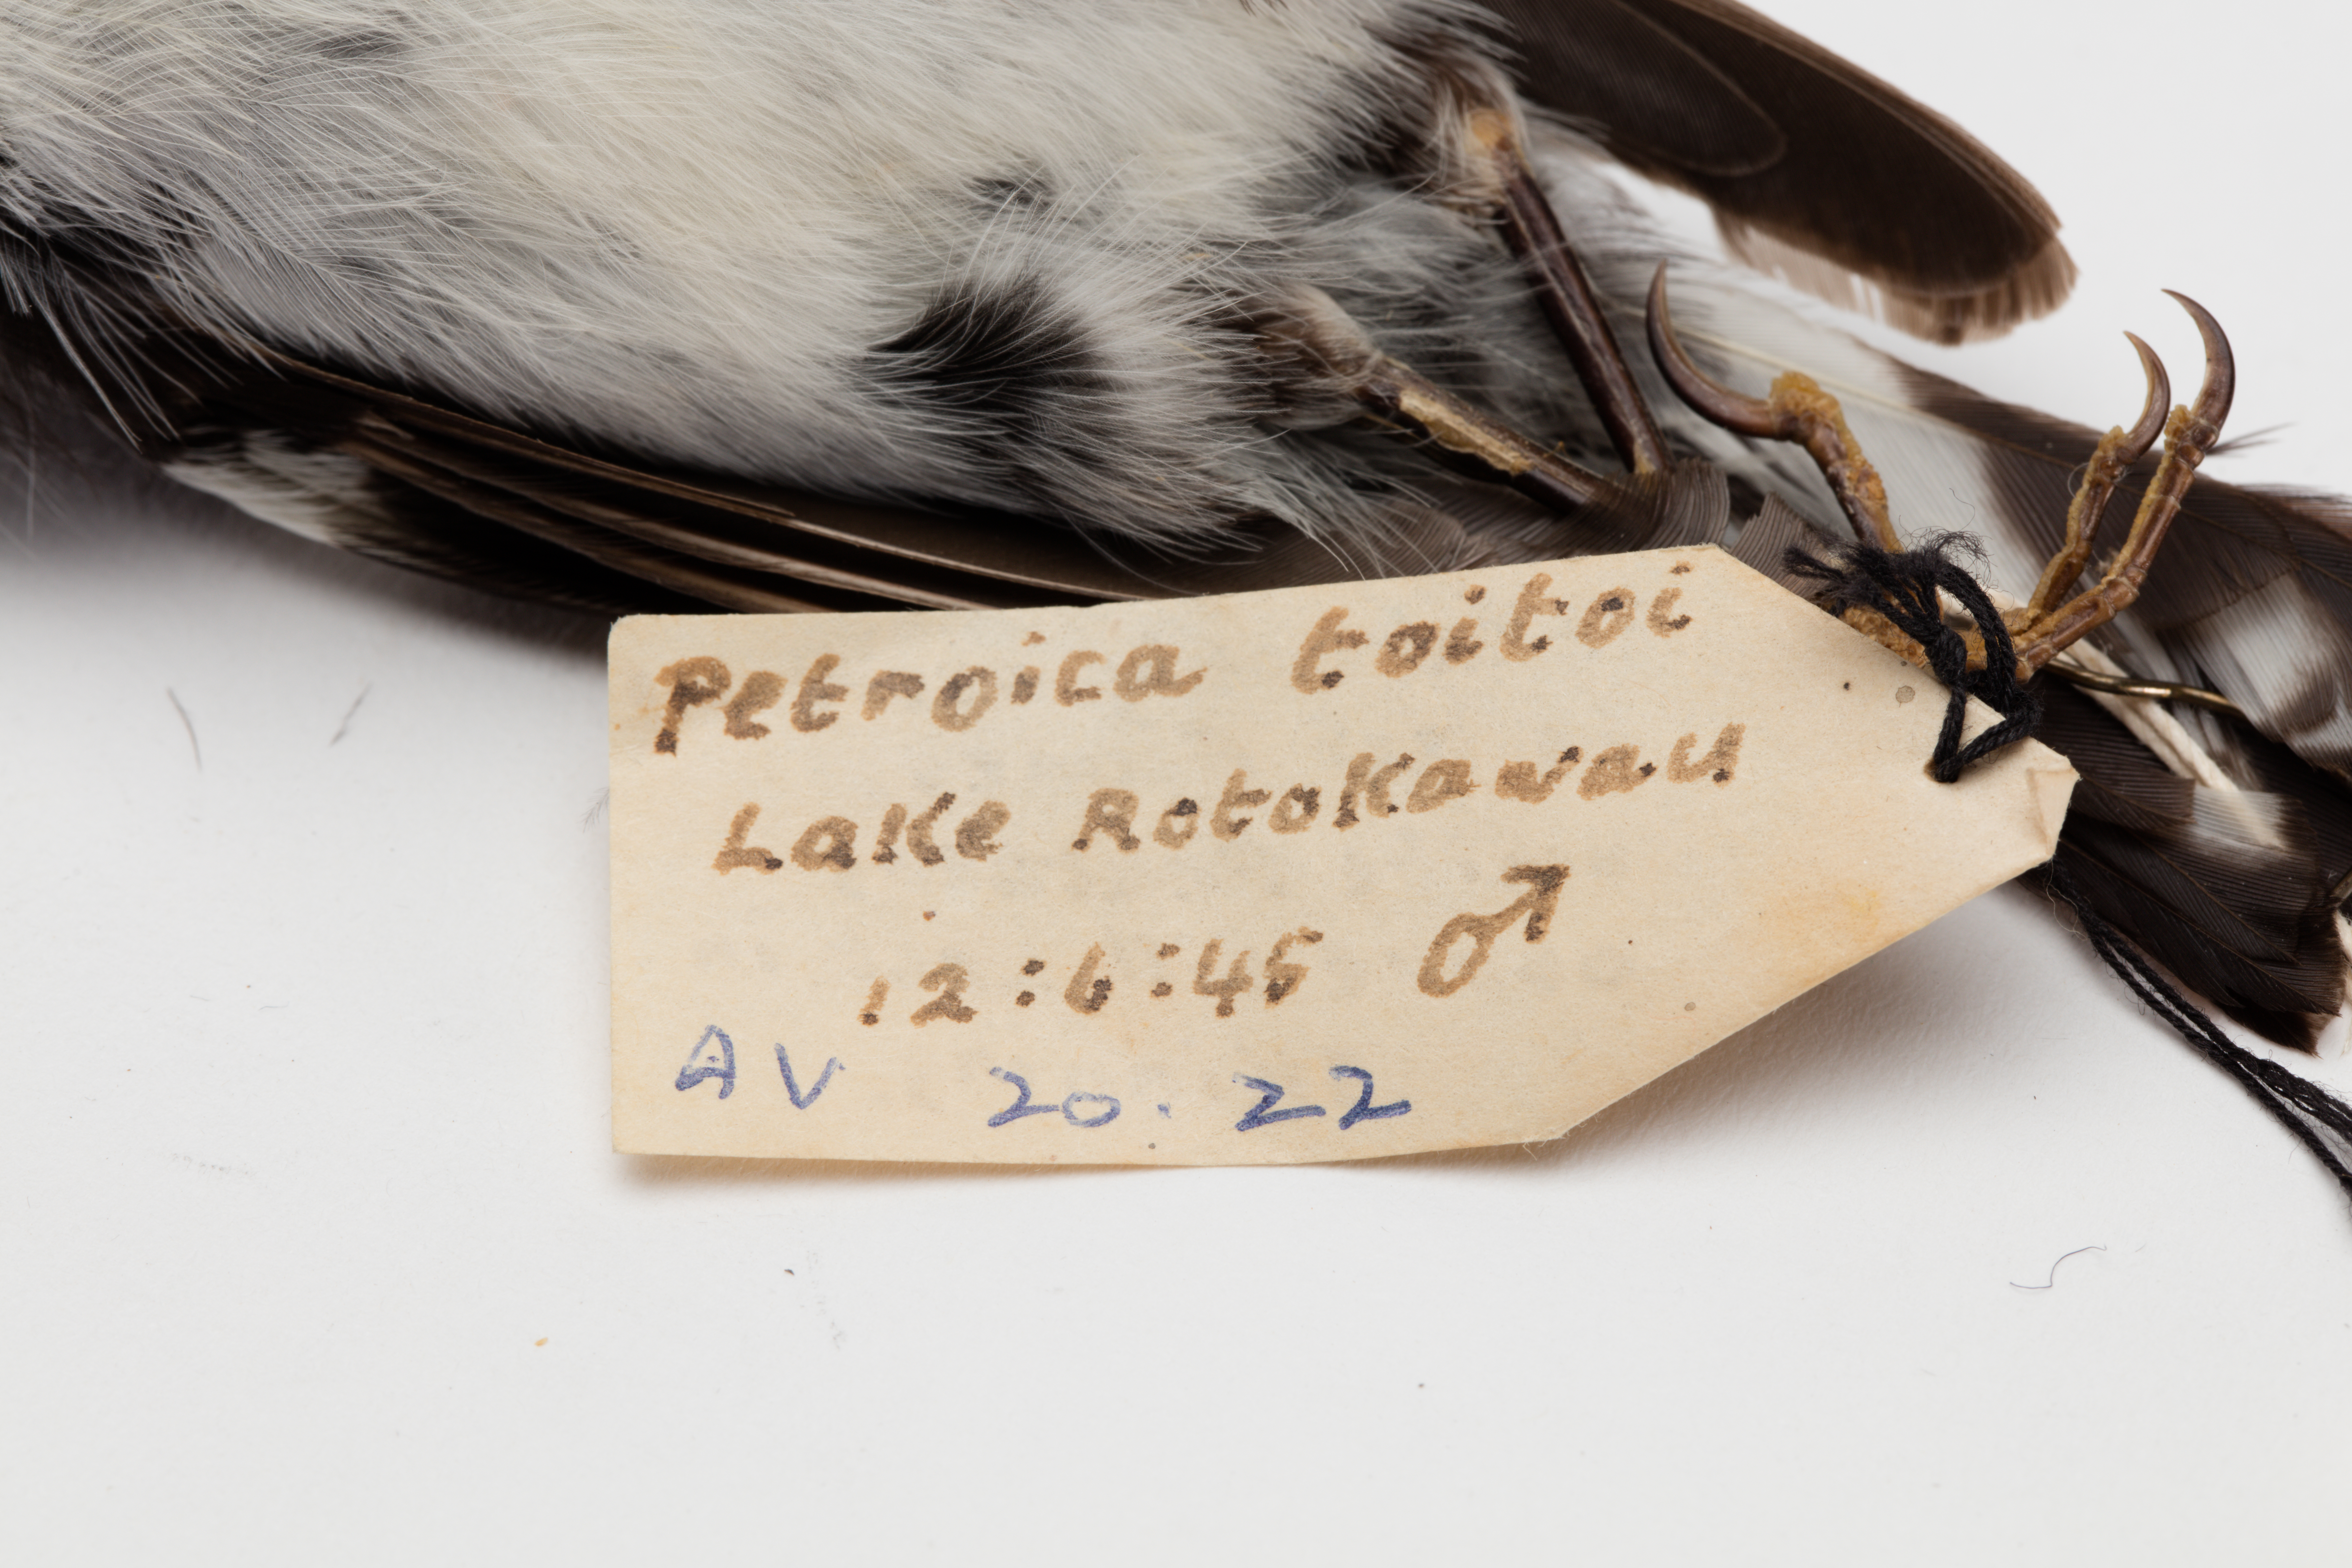 Petroica toitoi
Lake Rotokawau
12:6:45 ♂
AV 20.22